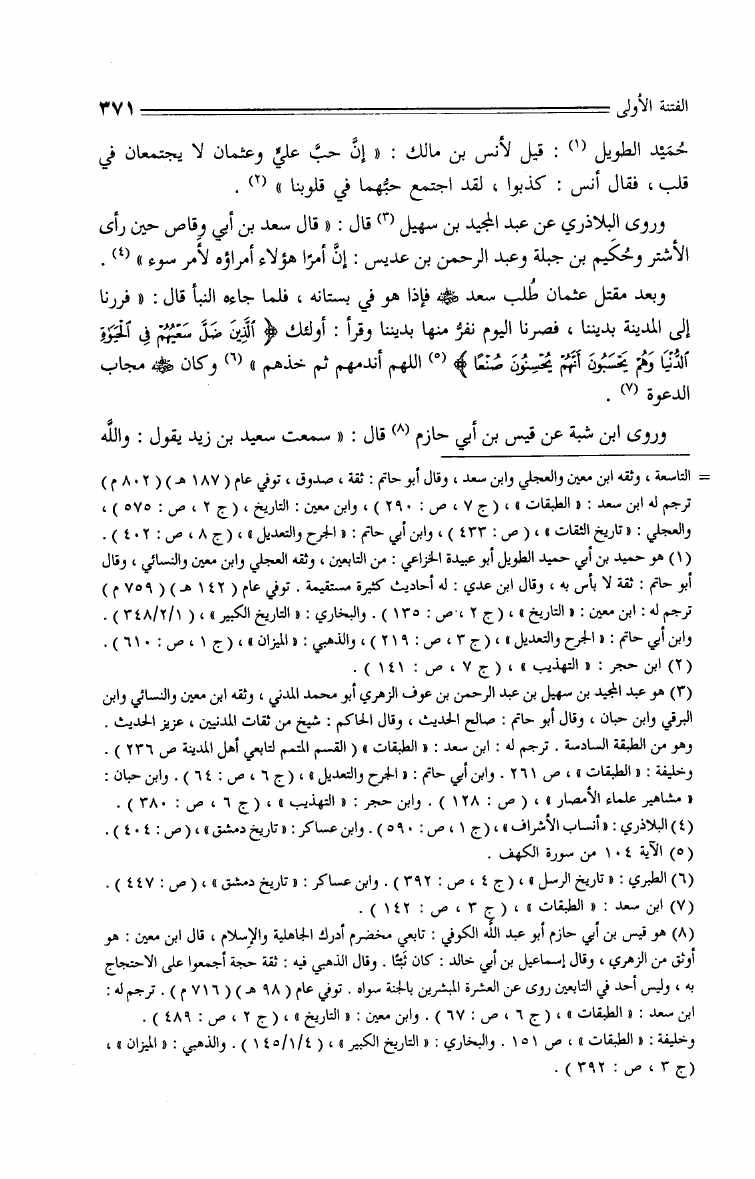 الفتنة الأولى ٣٧١
حُمَيْد الطويل (١) : قيل لأنس بن مالك : « إنَّ حبَّ عليٍّ وعثمان لا يجتمعان في
قلب ، فقال أنس : كذبوا ، لقد اجتمع حبُّهما في قلوبنا » (٢) .
وروى البلاذري عن عبد المجيد بن سهيل (٣) قال : « قال سعد بن أبي وقاص حين رأى
الأشتر وحُكَيم بن جبلة وعبد الرحمن بن عديس : إنَّ أمرًا هؤلاء أمراؤه لأمر سوء » (٤) .
وبعد مقتل عثمان طُلب سعد ﷺ فإذا هو في بستانه ، فلما جاءه النبأ قال : « فررنا
إلى المدينة بديننا ، فصرنا اليوم نفرُّ منها بديننا وقرأ : أولئك ﴿ ٱلَّذِينَ ضَلَّ سَعْيُهُمْ فِي ٱلْحَيَوٰةِ
ٱلدُّنْيَا وَهُمْ يَحْسَبُونَ أَنَّهُمْ يُحْسِنُونَ صُنْعًا ﴾ (٥) اللهم أندمهم ثم خذهم » (٦) وكان ﷺ مجاب
الدعوة (٧) .
وروى ابن شبة عن قيس بن أبي حازم (٨) قال : « سمعت سعيد بن زيد يقول : واللَّه
= التاسعة ، وثقه ابن معين والعجلي وابن سعد ، وقال أبو حاتم : ثقة ، صدوق ، توفي عام ( ١٨٧ هـ ) ( ٨٠٢ م )
ترجم له ابن سعد : « الطبقات » ، ( ج ٧ ، ص : ٢٩٠ ) ، وابن معين : التاريخ ، ( ج ٢ ، ص : ٥٧٥ ) ،
والعجلي : « تاريخ الثقات » ، ( ص : ٤٣٣ ) ، وابن أبي حاتم : « الجرح والتعديل » ، ( ج ٨ ، ص : ٤٠٢ ) .
(١) هو حميد بن أبي حميد الطويل أبو عبيدة الخزاعي : من التابعين ، وثقه العجلي وابن معين والنسائي ، وقال
أبو حاتم : ثقة لا بأس به ، وقال ابن عدي : له أحاديث كثيرة مستقيمة . توفي عام ( ١٤٢ هـ ) ( ٧٥٩ م )
ترجم له : ابن معين : « التاريخ » ، ( ج ٢ ، ص : ١٣٥ ) . والبخاري : « التاريخ الكبير » ، ( ٣٤٨/٢/١ ) .
وابن أبي حاتم : « الجرح والتعديل » ، ( ج ٣ ، ص : ٢١٩ ) ، والذهبي : « الميزان » ، ( ج ١ ، ص : ٦١٠ ) .
(٢) ابن حجر : « التهذيب » ، ( ج ٧ ، ص : ١٤١ ) .
(٣) هو عبد المجيد بن سهيل بن عبد الرحمن بن عوف الزهري أبو محمد المدني ، وثقه ابن معين والنسائي وابن
البرقي وابن حبان ، وقال أبو حاتم : صالح الحديث ، وقال الحاكم : شيخ من ثقات المدنيين ، عزيز الحديث .
وهو من الطبقة السادسة . ترجم له : ابن سعد : « الطبقات » ( القسم المتمم لتابعي أهل المدينة ص ٢٣٦ ) .
وخليفة : « الطبقات » ، ص ٢٦١ . وابن أبي حاتم : « الجرح والتعديل » ، ( ج ٦ ، ص : ٦٤ ) . وابن حبان :
« مشاهير علماء الأمصار » ، ( ص : ١٢٨ ) . وابن حجر : « التهذيب » ، ( ج ٦ ، ص : ٣٨٠ ) .
(٤) البلاذري : « أنساب الأشراف » ، ( ج ١ ، ص : ٥٩٠ ) . وابن عساكر : « تاريخ دمشق » ، ( ص : ٤٠٤ ) .
(٥) الآية ١٠٤ من سورة الكهف .
(٦) الطبري : « تاريخ الرسل » ، ( ج ٤ ، ص : ٣٩٢ ) . وابن عساكر : « تاريخ دمشق » ، ( ص : ٤٤٧ ) .
(٧) ابن سعد : « الطبقات » ، ( ج ٣ ، ص : ١٤٢ ) .
(٨) هو قيس بن أبي حازم أبو عبد اللَّه الكوفي : تابعي مخضرم أدرك الجاهلية والإسلام ، قال ابن معين : هو
أوثق من الزهري ، وقال إسماعيل بن أبي خالد : كان ثَبْتًا . وقال الذهبي فيه : ثقة حجة أجمعوا على الاحتجاج
به ، وليس أحد في التابعين روى عن العشرة المبشرين بالجنة سواه . توفي عام ( ٩٨ هـ ) ( ٧١٦ م ) . ترجم له :
ابن سعد : « الطبقات » ، ( ج ٦ ، ص : ٦٧ ) . وابن معين : « التاريخ » ، ( ج ٢ ، ص : ٤٨٩ ) .
وخليفة : « الطبقات » ، ص ١٥١ . والبخاري : « التاريخ الكبير » ، ( ١٤٥/١/٤ ) . والذهبي : « الميزان » ،
( ج ٣ ، ص : ٣٩٢ ) .